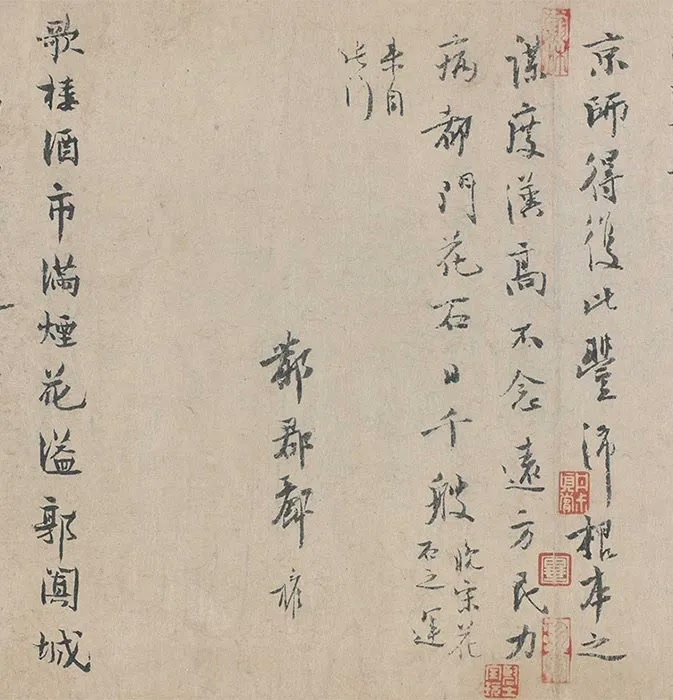 京師得復比豐沛根本之
謀度漢高不念遠方民力
病都門花石日千艘
晚宋花
石之運
來自
此門
鄴郡酈權
歌樓酒市滿煙花溢郭闐城